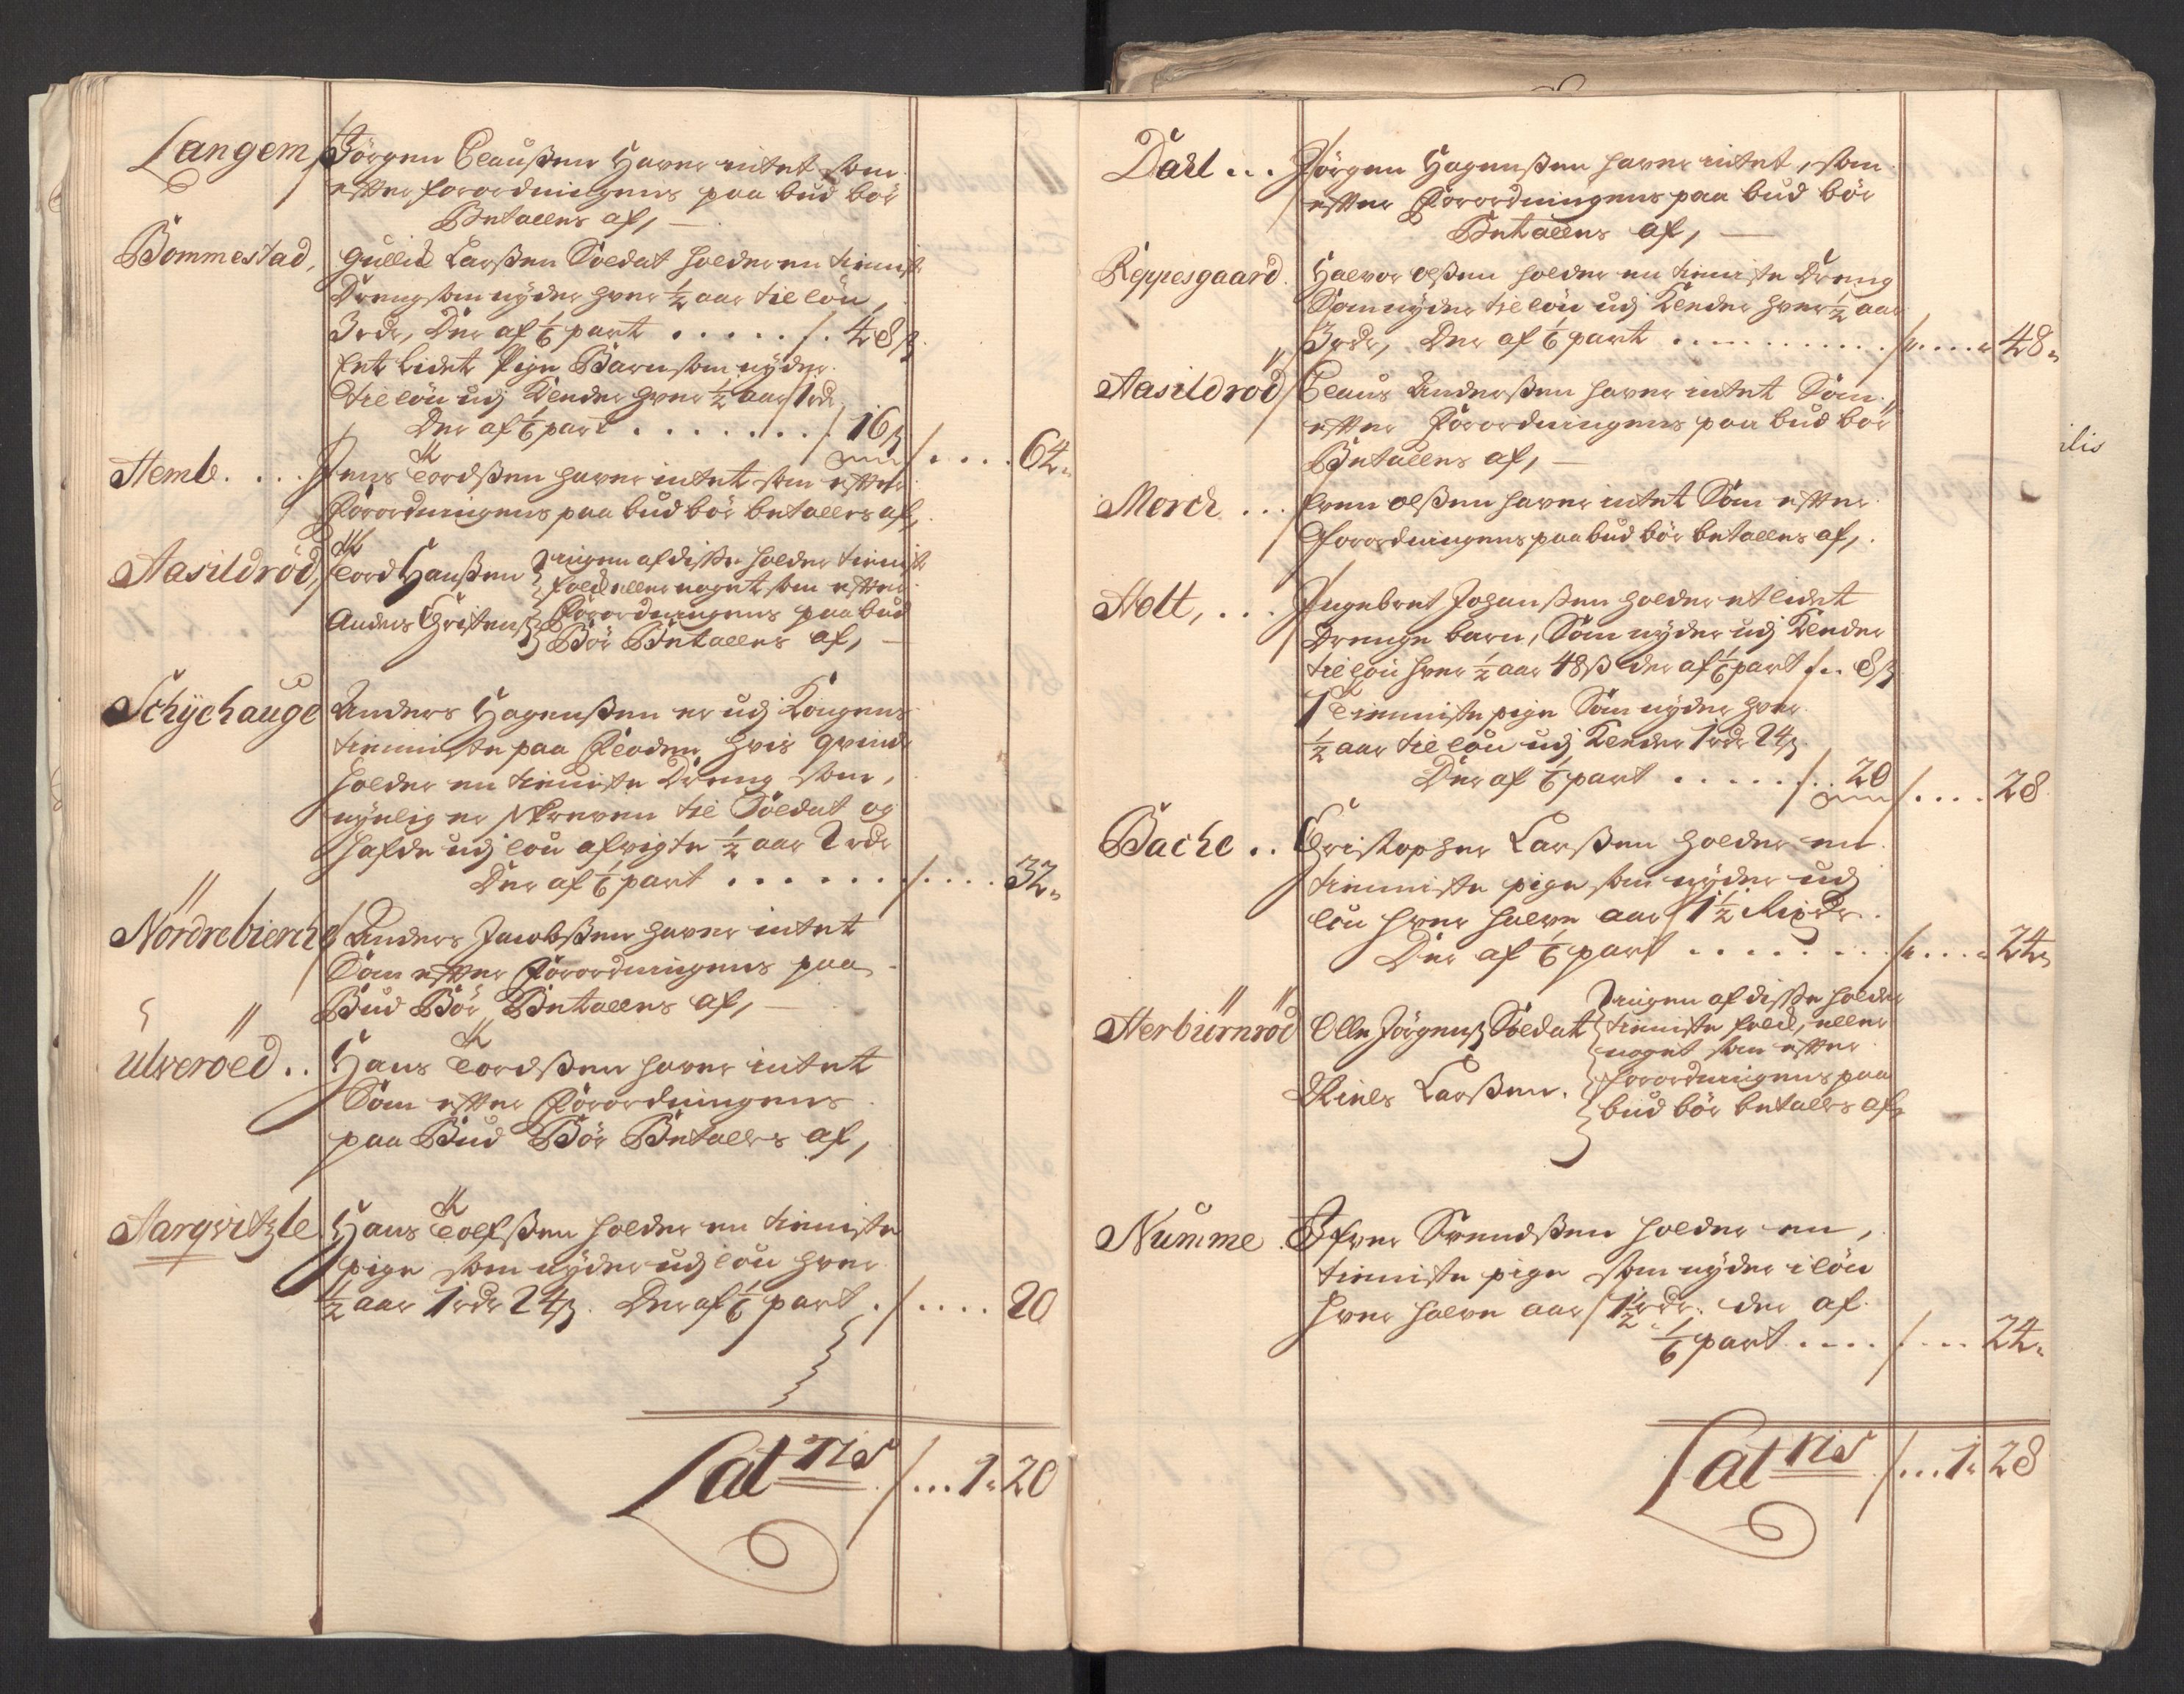 Langem
Jörgen Claußen Haver intet som
efter forordningens paa bud bör
Betalles af,
Bommestad,
Gullich Larßen Soldat holder en tienniste
Dreng som nyder hver ½ aar til lön
3 rdr, Der af 1/6 part . . . . . . 48 ß
Eet lidet Pige Barn som nyder
til lön udj Klæder hver ½ aar 1 rdr
Der af 1/6 part . . . . . . . 16 ß
64
Hemb. . . .
Jens Tordßen haver intet som efter
Forordningens paa bud bör betalles af,
Aasildröd,
Tord Hanßen
Anders Christenß
ingen af diße holder tienniste
folch eller noget som efter
Forordningens paa bud
Bör Betalles af,
Schychauge
Anders Hagenßen er udj Kongens
tienniste paa Floden, hvis qvinde
holder en tienniste Dreng som,
nylig er skreven til Soldat og
hafde udj lön afvigte ½ aar 2 rdr
Der af 1/6 part . . . . . . . 32
Nördrebierche
Anders Jacobßen haver intet
Som efter Forordningens paa
Bud Bör Betalles af,
Ulveröed..
Hans Tordßen haver intet
Som efter Forordningens
paa Bud Bör Betalles af,
Aarqvitzle
Hans Tolfßen holder en tienniste
pige som nyder udj lön hver
½ aar 1 rdr 24 ß. Der af 1/6 part . . . . . 20
Lat ris . . . 1 20
Dahl ...
Jörgen Hagenßen haver intet, som
efter Forordningens paa bud bör
Betalles af,
Reppesgaard.
Halvor Olßen holder en tienniste Dreng
Som nyder til lön udj Klæder hver ½ aar
3 rdr, Der af 1/6 part . . . . . . . . . . . 48
Aasildröd
Claus Anderßen haver intet Som
efter Forordningens paa bud bör
Betalles af,
Morch ...
Even Olßen haver intet Som efter
Forordningens paa bud bör betalles af,
Holt, ...
Ingebret Johanßen holder et lidet
Drenge barn, Som nyder udj Klæder
til lön hver ½ aar 48 ß der af 1/6 part . . 8 ß
1 Tienniste pige Som nyder hver
½ aar til lön udj Klæder 1 rdr 24 ß
Der af 1/6 part . . . . . . . 20
28
Bache ..
Christopher Larßen holder en
tienniste pige som nyder udj
lön hver halve aar 1½ Rixdr.
Der af 1/6 part . . . . . . . . 24
Herbiörnröd
Olle Jörgenß Soldat
Niels Larßen.
ingen af diße holder
tienniste folch, eller
noget som efter
forordningens paa
bud bör betalles af
Numme
Ifver Svendßen holder en,
tienniste pige som nyder i lön
hver halve aar 1½ rdr. der af
1/6 part . . . . . . . 24
Lat ris . . . 1 28
ilis